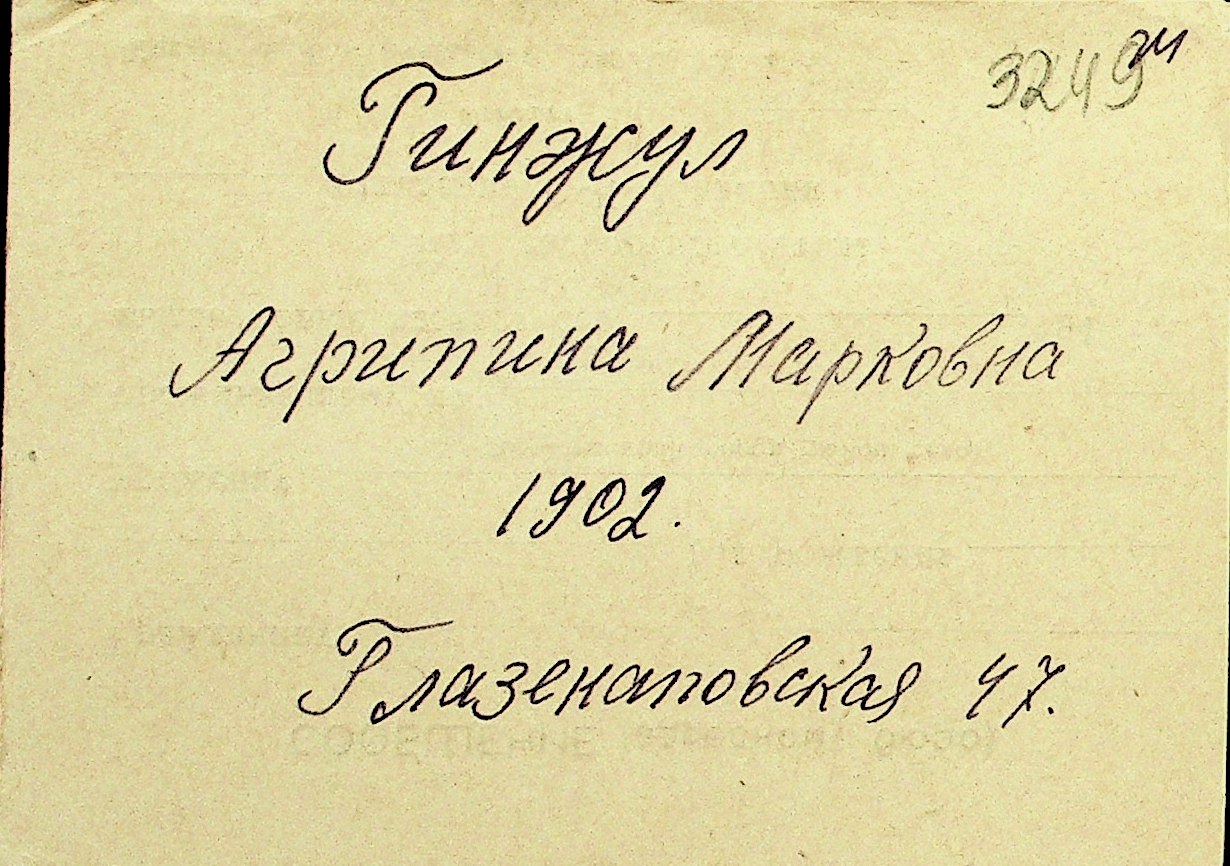 3249
Гинжул
Агрипина Марковна
1902.
Глазенаповская 47.